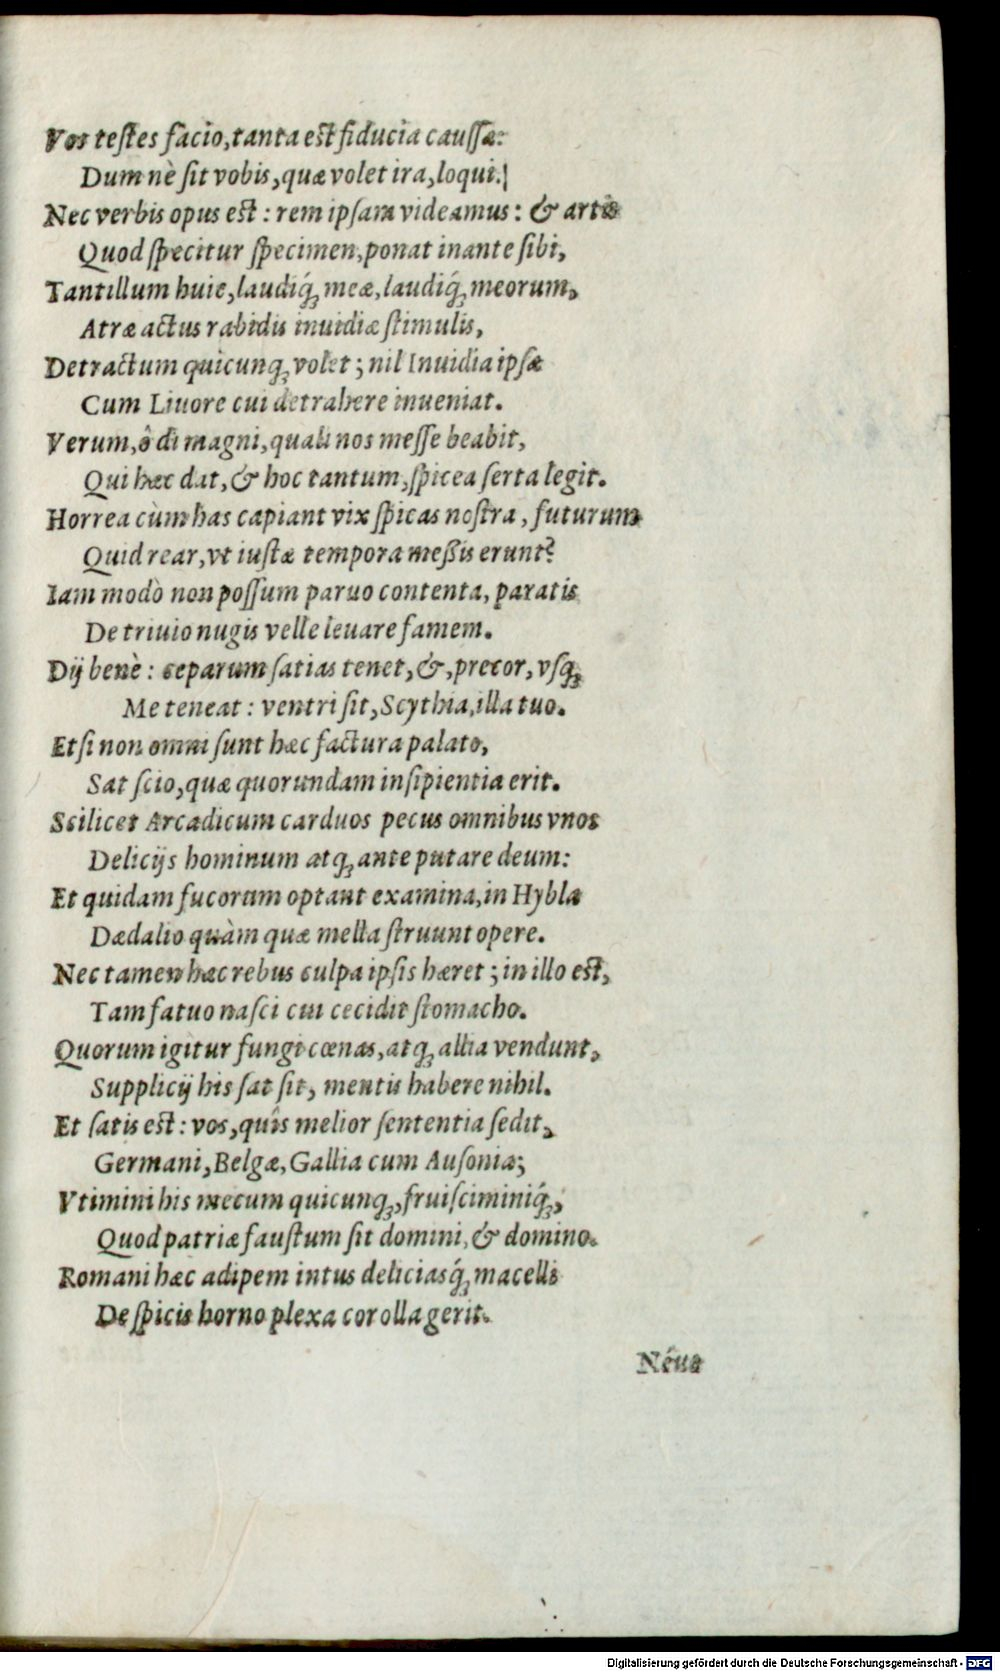 Vos teſtes facio, tanta eſt fiducia cauſſæ:
Dum nè ſit vobis, quæ volet ira, loqui.
Nec verbis opus eſt: rem ipſam videamus: & artis
Quod ſpecitur ſpecimen, ponat in ante ſibi,
Tantillum huic, laudiq́; meæ, laudiq́; meorum,
Atræ actus rabidis inuidiæ ſtimulis,
Detractum quicunq; volet; nil Inuidia ipſæ
Cum Liuore cui detrahere inueniat.
Verum, ô di magni, quali nos meſſe beabit,
Qui hæc dat, & hoc tantum, ſpicea ſerta legit.
Horrea cùm has capiant vix ſpicas noſtra, futurum
Quid rear, vt iuſtæ tempora meßis erunt?
Iam modò non poſſum paruo contenta, paratis
De triuio nugis velle leuare famem.
Dij benè: ceparum ſatias tenet, &, precor, vſq;
Me teneat: ventri ſit, Scythia, illa tuo.
Etſi non omni ſunt hæc factura palato,
Sat ſcio, quæ quorundam inſipientia erit.
Scilicet Arcadicum carduos pecus omnibus vnos
Delicijs hominum atq; ante putare deum:
Et quidam fucorum optant examina, in Hybla
Dædalio quàm quæ mella ſtruunt opere.
Nec tamen hæc rebus culpa ipſis hæret; in illo eſt,
Tam fatuo naſci cui cecidit ſtomacho.
Quorum igitur fungi cœnas, atq; allia vendunt,
Supplicij his ſat ſit, mentis habere nihil.
Et ſatis eſt: vos, quîs melior ſententia ſedit,
Germani, Belgæ, Gallia cum Auſonia;
Vtimini his mecum quicunq;, fruiſciminiq́;,
Quod patriæ fauſtum ſit domini, & domino.
Romani hæc adipem intus deliciasq́; macelli
De ſpicis horno plexa corolla gerit.
Néue
Digitalisierung gefördert durch die Deutsche Forschungsgemeinschaft - DFG